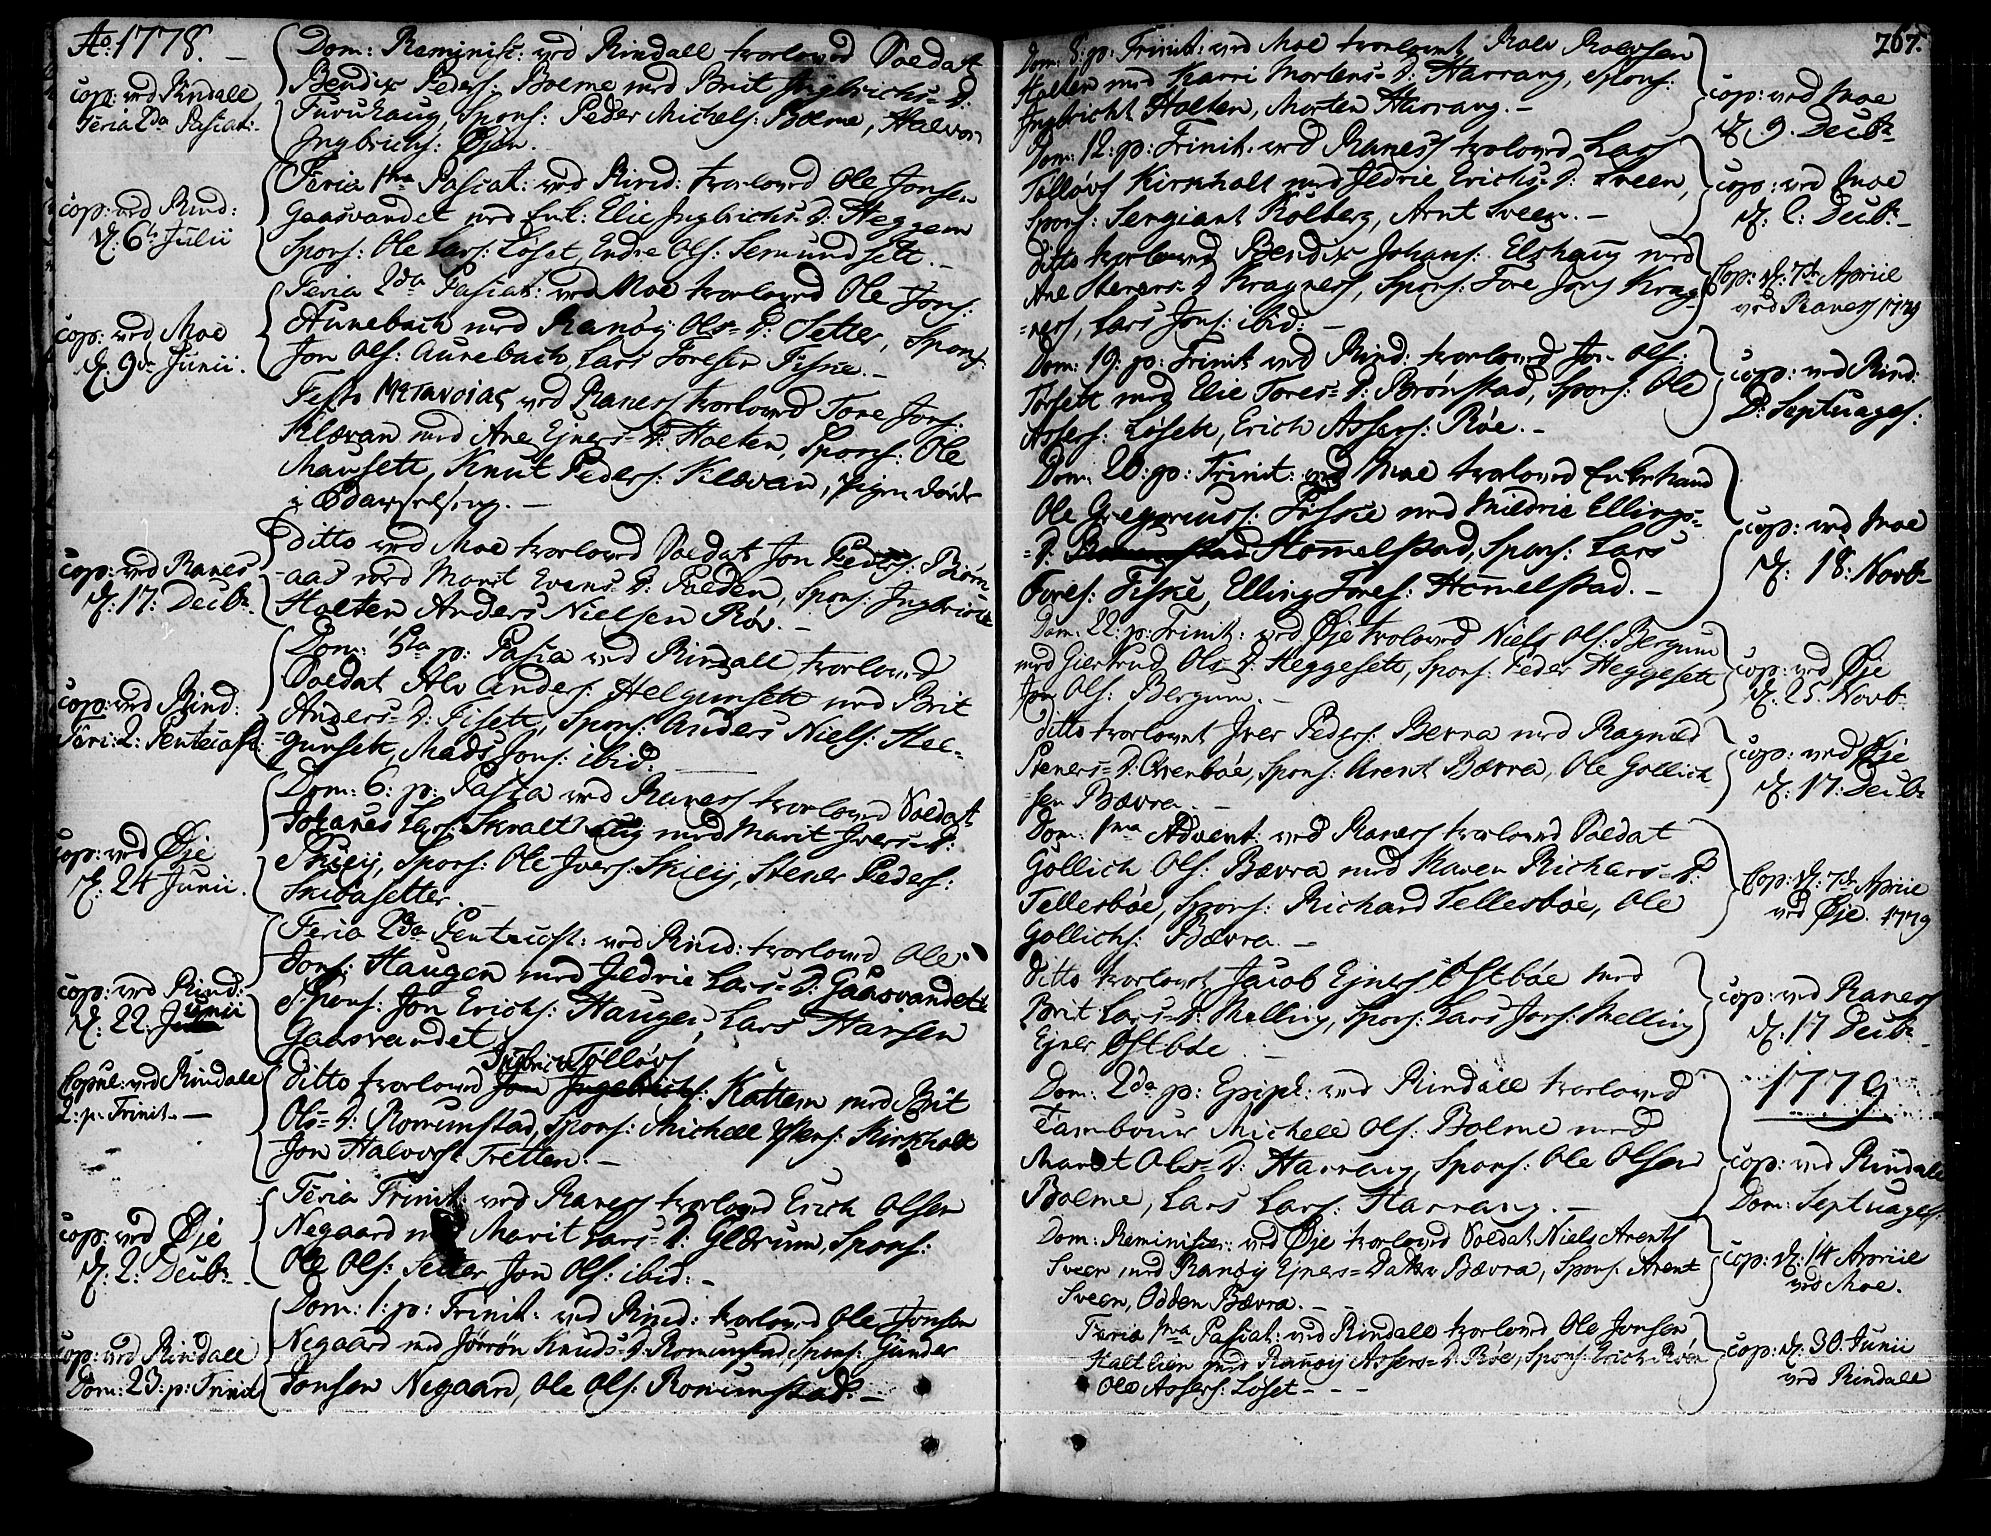 Ao. 1778. –
Dom: Reminisc: ved Rindall trolovet Soldat
Bendix Peders: Bolme med Brit Ingbrichs=D:
Furuhaug, Spons: Peder Michels: Bolme, Halvor
Ingbrichs: Øyen.
cop: ved Rindall
Feria 2da Pascat:
Feria 1ma Pascat: ved Rind: trolovet Ole Jonsen
Gaasvandet med Enk: Elie Ingbrichs=D: Heggem
Spons: Ole Lars: Løset, Endre Ols: Semundset. –
cop: ved Rind:
d: 6te Julii
Feria 2da Pascat: ved Moe trolovet Ole Jons:
Aunebach med Ranøy Ols=D: Setter, Spons:
Jon Ols: Aunebach, Lars Toresen Fiske. –
cop: ved Moe
d. 9de Junii.
Festo Μετανοιας ved Raness trolovet Tore Jons:
Klævan med Ane Ejners=D: Holten, Spons: Ole
Mausett, Knut Peders: Klævan, Pigen døde
i Barselseng. –
ditto ved Moe trolovet Soldat Jon Peders: Biørn
aas med Marit Evens=D: Polden, Spons: Ingbricht
Holten Anders Nielsen Røv. –
cop: ved Ranes
d: 17: Decbr
Dom: 5ta p: Pascha ved Rindall trolovet
Soldat Alv Anders: Helgunsett med Brit
Anders=D: Fisett, Spons: Anders Niels: Hel-
gunsett, Mads Jons: ibid.
cop: ved Rind:
Feri: 2: Pentecost:
Dom: 6: p: Pasca ved Raness trolovet Soldat
Johanes Lars: Skralt med Marit Ivers=D:
Skieij, Spons: Ole Ivers: Skieij, Stener Peders:
Skibasetter. –
cop: ved Øje
d. 24 Junii.
Feria 2da Pentecost: ved Rind: trolovet Ole
Jons: Haugen med Jldrie Lars=D: Gaasvandet
Spons: Jon Erichs: Haugen, Lars Hansen
Gaasvandet
cop: ved Rind:
d: 22: Junii
Ingbricht Tolløvs
Ditto trolovet Jon Ingebrichts: Kattem med Brit
Ols=D: Romunstad, Spons: Michell Kirkholt
Jon Halvors: Tretten. –
Copul: ved Rindall
2: p: Trinit. –
Feria Trinit: ved Raness trolovet Erich Olsen
Negaard med Marit Lars=D: Glærum, Spons:
Ole Ols: Setter, Jon Ols: ibid: –
cop: ved Øje
d: 2: Decbr
Dom: 1: p: Trinit: ved Rind: trolovet Ole Jonsen
Negaard med Jørøn Knuds=D: Romunstad, Spons: Gunder
Jonsen Negaard, Ole Ols: Romunstad. –
cop: ved Rindall
Dom: 23: p: Trinit
267.
Dom: 8: p: Trinit: ved Moe trolovet Rolv Rolvsen
Holten med Karri Mortens=D: Harrang, Spons:
Ingbricht Holten, Morten Harrang. –
cop: ved Moe
d. 9. Decbr
Dom: 12: p: Trinit: ved Raness trolovet Lars
Tolløvs Kirkholt med Jldrie Erichs=D: Sveen,
Spons: Sergiant Kolberg, Arnt Sveen. –
cop: ved Moe
d: 2: Decbr –
Ditto trolovet Bendix Johans: Elshaug med
Ane Steners=D Kragness, Spons: Tore Jons Krag
ness, Lars Jons: ibid: –
Cop: d: 7de Apriil
ved Raness 1779
Dom: 19: p: Trinit: ved Rind: trolovet Jon Ols:
Torsett med Elie Tores=D: Brønstad, Spons: Ole
Assers: Løset, Erich Assers: Røe. –
cop: ved Rind:
D: Septuages:
Dom: 20: p: Trinit: ved Moe trolovet Enkemand
Ole Gregoriuss: Fiske med Mildrie Ellings=
=D: Hommelstad, Spons: Lars
Tores: Fiske, Elling Tores: Hommelstad. –
cop: ved Moe
d: 18: Novbr
Dom: 22: p: Trinit: ved Øje trolovet Niels Ols: Bergum
med Giertrud Ols=D: Heggesett, Spons: Peder Heggesett
Jon Ols: Bergum. –
cop: ved Øje
d. 25. Novbr
Ditto trolovet Iver Peders: Berva med Ragnild
Steners=D: Qvenbøe, Spons: Arent Bævra, Ole Gollich
sen Bævra. –
cop: ved Øje
d: 17: Decbr
Dom: 1ma Advent: ved Raness trolovet Soldat
Gollich Ols: Bævra med Maren Richars=D:
Tellesbøe, Spons: Richard Tellesbøe, Ole
Gollichs: Bævra. –
Cop: d: 7de Apriil
ved Øje. 1779
Ditto trolovet Jacob Ejners Østbøe med
Brit Lars=D: Melling, Spons: Lars Jons: Melling
Ejner Østbøe –
cop: ved Raness
d: 17 Decbr
Dom: 2da p: Epiph: ved Rindall trolovet
Tambour Michell Ols: Bolme med
Marit Ols=D: Harrang, Spons: Ole Olsen
Bolme, Lars Lars: Harrang. –
1779
cop: ved Rindall
Dom: Septuages:
Dom: Reminiscer: ved Øje trolovet Soldat Niels Arents
Sveen med Ranøy Ejners=Datter Bævra, Spons: Arent
Sveen, Odden Bævra. –
cop: d: 14 Apriil
ved Moe.
Feria 1ma Pascat: ved Rindall trolovet Ole Jonsen
Haltlien med Ranøy Assers=D: Røe, Spons: Erich Røen
Ole Assers: Løset – – –
cop: d: 30. Junii
ved Rindall